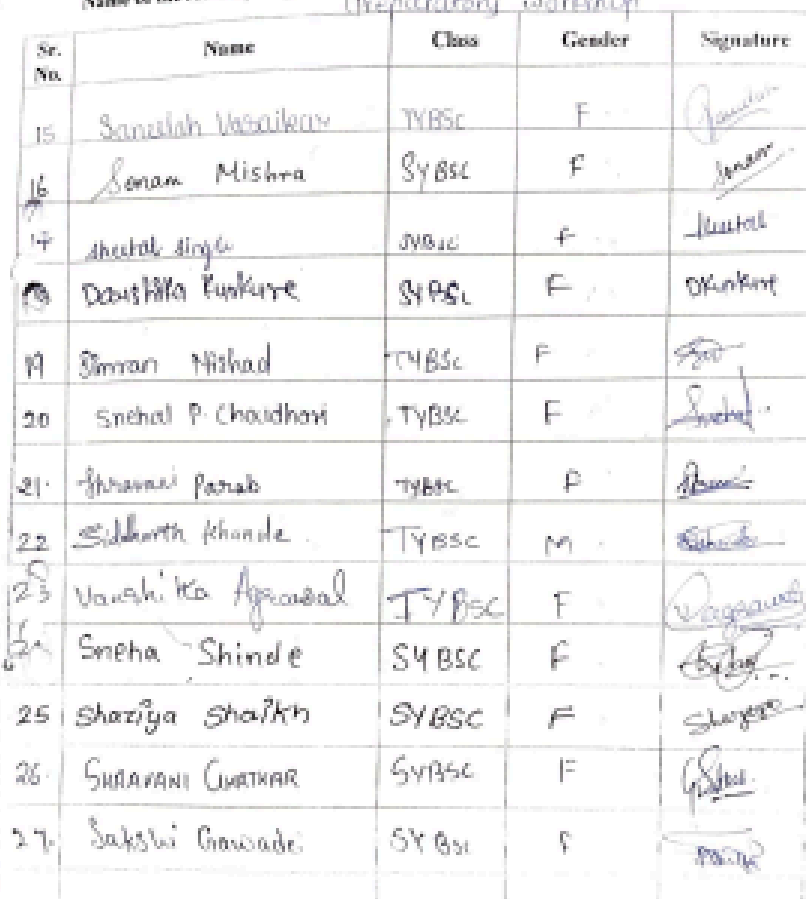 Preparatory Workshop
Sr. No. Name Class Gender Signature
15 Vasaikar TYBSc F
16 Sonam Mishra SYBSc F Sonam
17 sheetal singh SYBSc F Sheetal
Kurkure SYBSc F DKurkure
19 Simran Nishad TYBSc F
20 Snehal P. Chaudhari TYBSc F Snehal
21. Shravani Parab TYBSc F
22 Siddharth Khande TYBSc M
23 Vanshika Agrawal TYBSc F Vagrawal
24 Sneha Shinde SYBSC F
25 Shaziya Shaikh SYBSC F
26. SHRAVANI GHATKAR SYBSC F
27. Sakshi Gawade SYBSc F